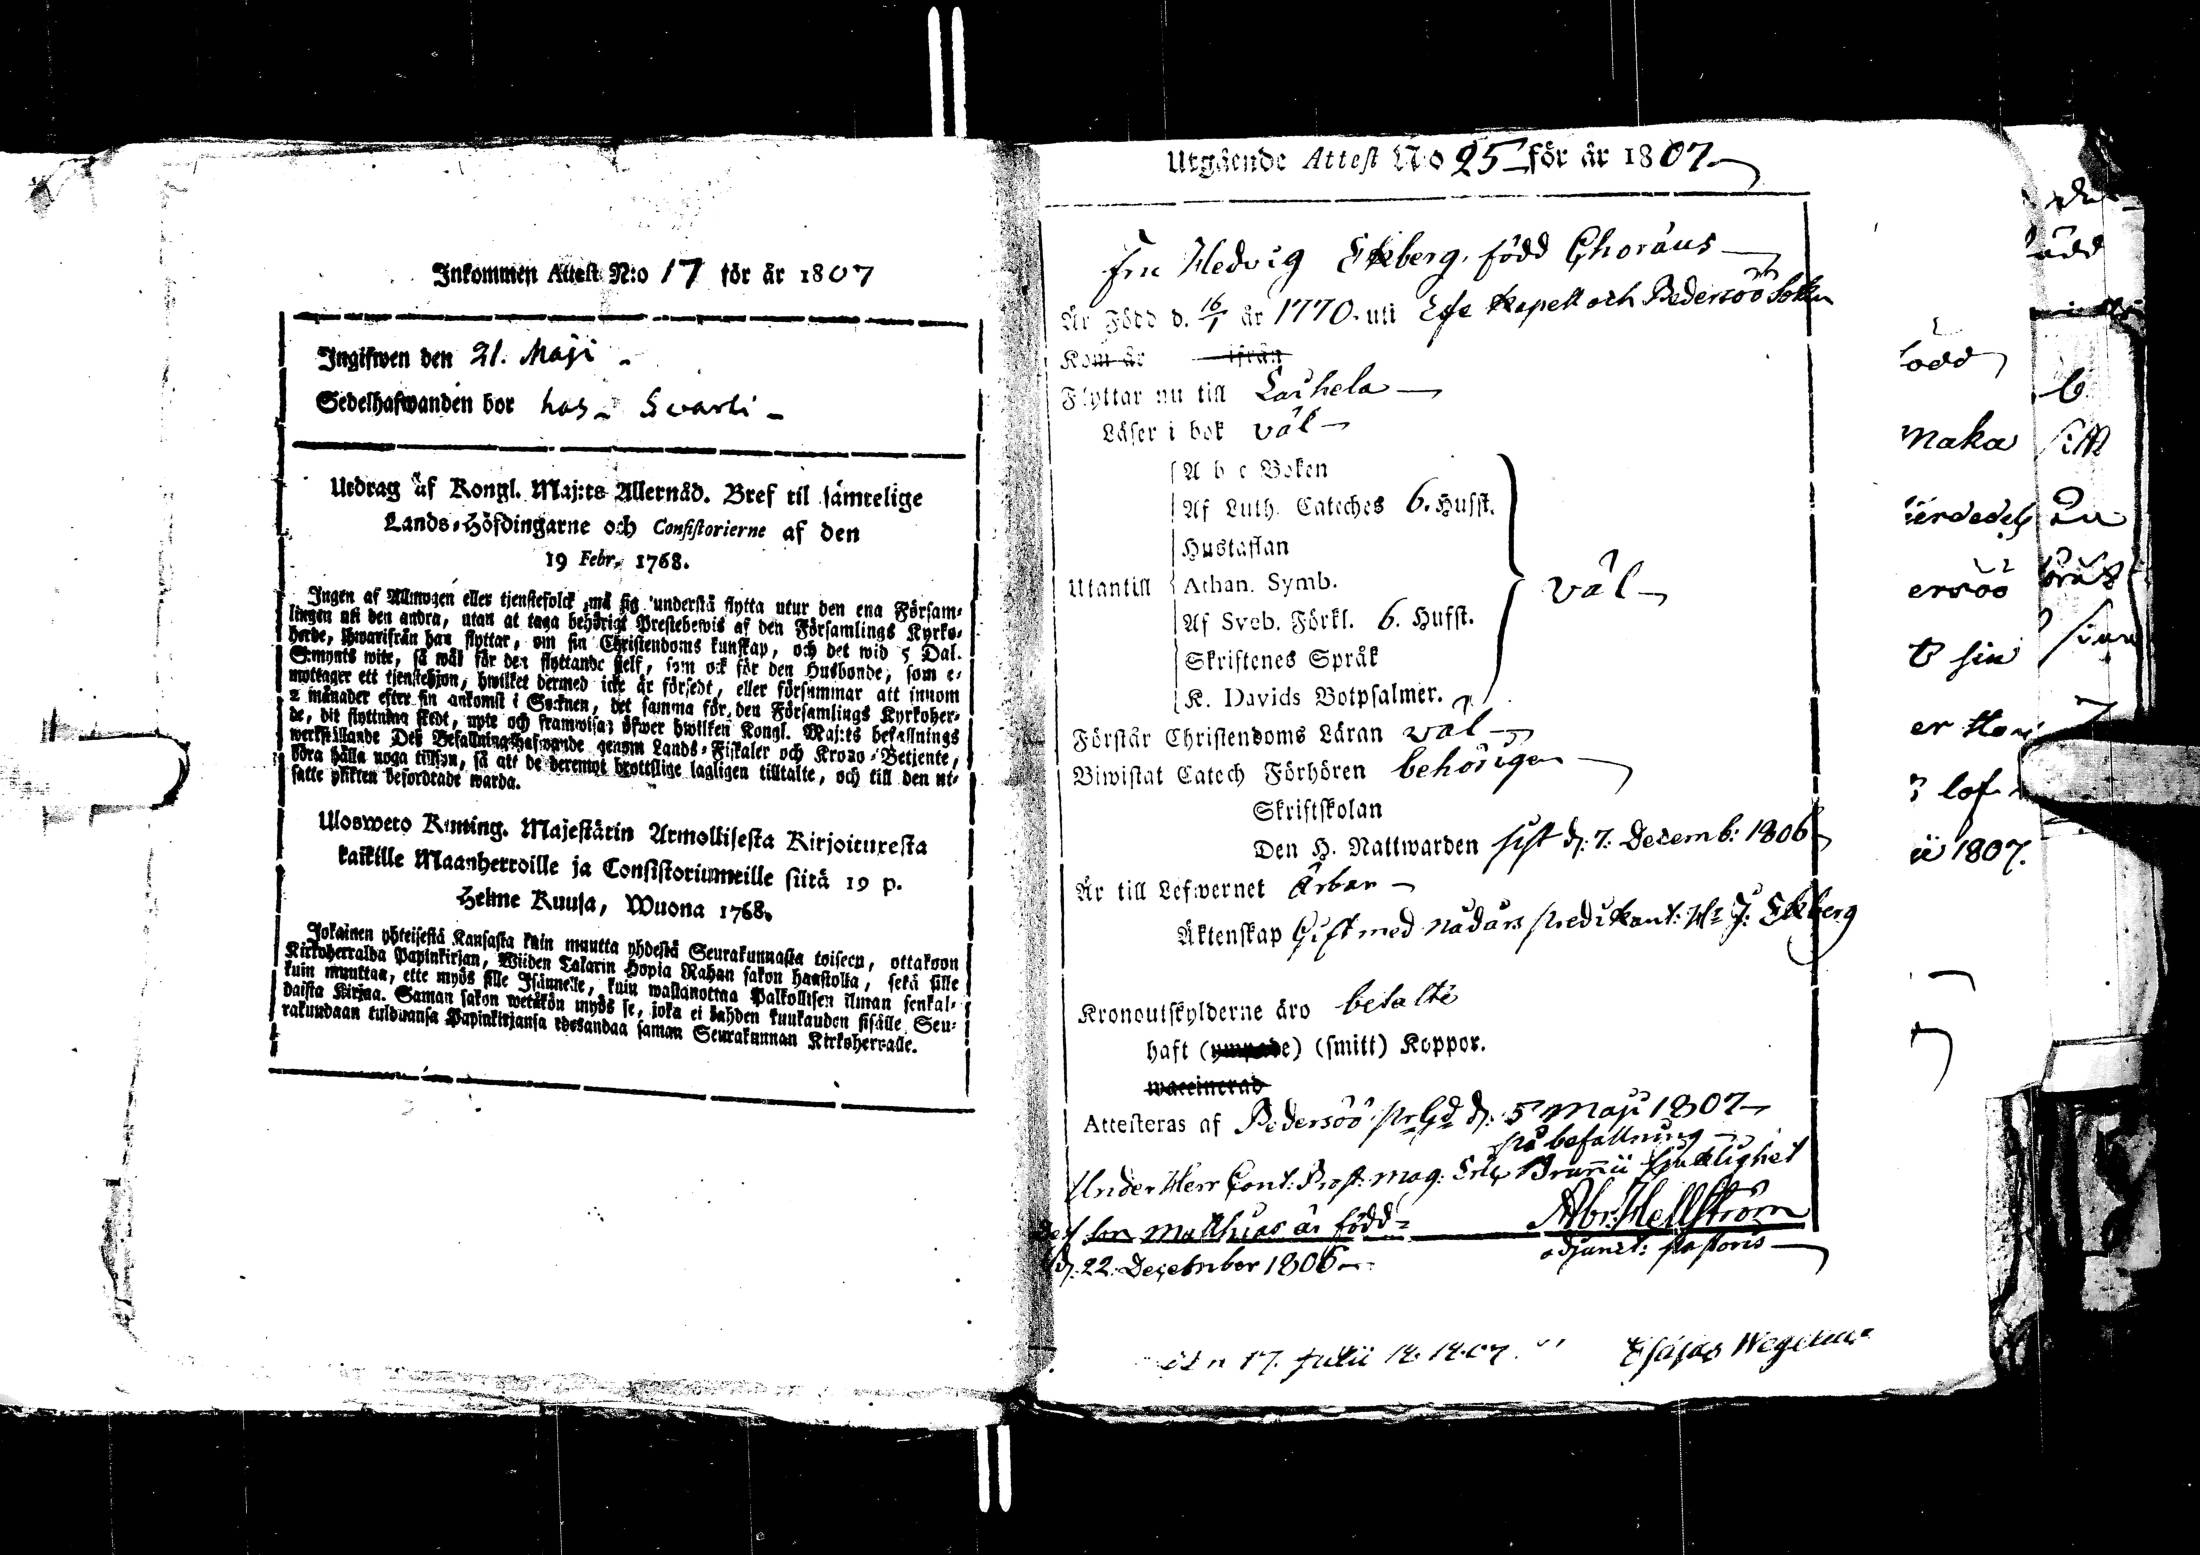 Inkommen Attest N:o 17 för år 1807
Ingifwen den 21. Maji
Sedelhafwanden bor hos Svarli
Utdrag af Kongl. Maj:ts Allernåd. Bref til samtelige
Lands-Höfdingarne och Consistorierne af den
19 Febr. 1768.
Ingen af Allmogen eller tjenstefolck må sig understå flytta utur den ena Försam-
lingen uti den andra, utan at taga behörigt Prestebewis af den Församlings Kyrko-
herde, hwarifrån han flyttar, om sin Christendoms kunskap, och det wid 5 Dal.
S:mynts wite, så wäl för den flyttande sjelf, som ock för den Husbonde, som e-
mottager ett tjenstehjon, hwilket dermed icke är försedt, eller försummar att innom
2 månader efter sin ankomst i Socknen, det samma för den Församlings Kyrkoher-
de, dit flyttning skedt, upte och framwisa; öfwer hwilken Kongl. Maj:ts befallnings
werkställande Des Befallningshafwande genom Lands-Fiskaler och Krono-Betjente,
böra hålla noga tillsyn, så att de deremot brottslige lagligen tilltalte, och till den ut-
satte plikten befordrade warda.
Ulosweto Kuning. Majestätin Armollisesta Kirjoituxesta
kaikille Maanherroille ja Consistoriumeille siitä 19 p.
Helme Kuusa, Wuona 1768.
Jokainen yhteisestä Kansasta kuin muutta yhdestä Seurakunnasta toiseen, ottakoon
Kirkoherralda Papinkirjan, Wiiden Talarin Hopia Rahan sakon haastolla, sekä sille
kuin muuttaa, ette myös sille Isännelle, kuin wastanottaa Palkollisen ilman senkal-
daista Kirjaa. Saman sakon wetäkön myös se, joka ei kahden kuukauden sisälle Seu-
rakundaan tuldwansa Papinkirjansa edesandaa saman Seurakunnan Kirkoherralle.
Utgående Attest N:o 25 för år 1807
Fru Hedvig Ekberg, född Choraus
Är Född d. 16/1 år 1770. uti Esse Kapell och Pedersöö Sokn
Kom år ifrån
Flyttar nu till Laihela
Läser i bok väl
A b c Boken
Af Luth. Cateches 6. Hufst.
Hustaflan
Utantill Athan. Symb. väl
Af Sveb. Förkl. 6. Hufst.
Skriftenes Språk
K. Davids Botpsalmer.
Förstår Christendoms Läran väl
Biwistat Catech Förhören behörigen
Skriftskolan
Den H. Nattwarden sist d: 7: Decemb: 1806
Är till Lefwernet Ärbar
Äktenskap Gift med Nådårs Predikant: Hr J: Ekberg
Kronoutskylderne äro betalte
haft (ympade) (smitt) Koppor.
waccinerad
Attesteras af Pedersöö PrGd d: 5 Maji 1807
på befallning
Under Herr Cont: Prost: Mag: Eric Brunnii sjuklighet
Abr: Hellström
adjunct: pastoris
des son Matthias är född
d: 22 December 1806
17. Julii 1807. Esajas Wegelius
ödd
maka
ersöö
sin
1807.